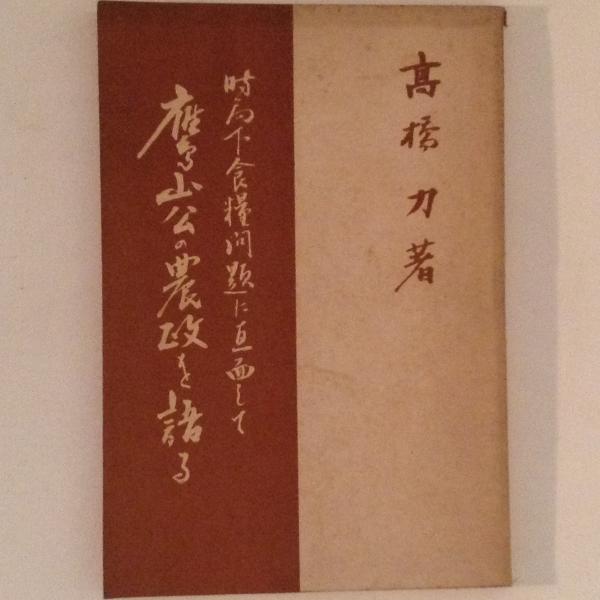 高橋力著
時局下食糧問題に直面して
鷹山公の農政を語る